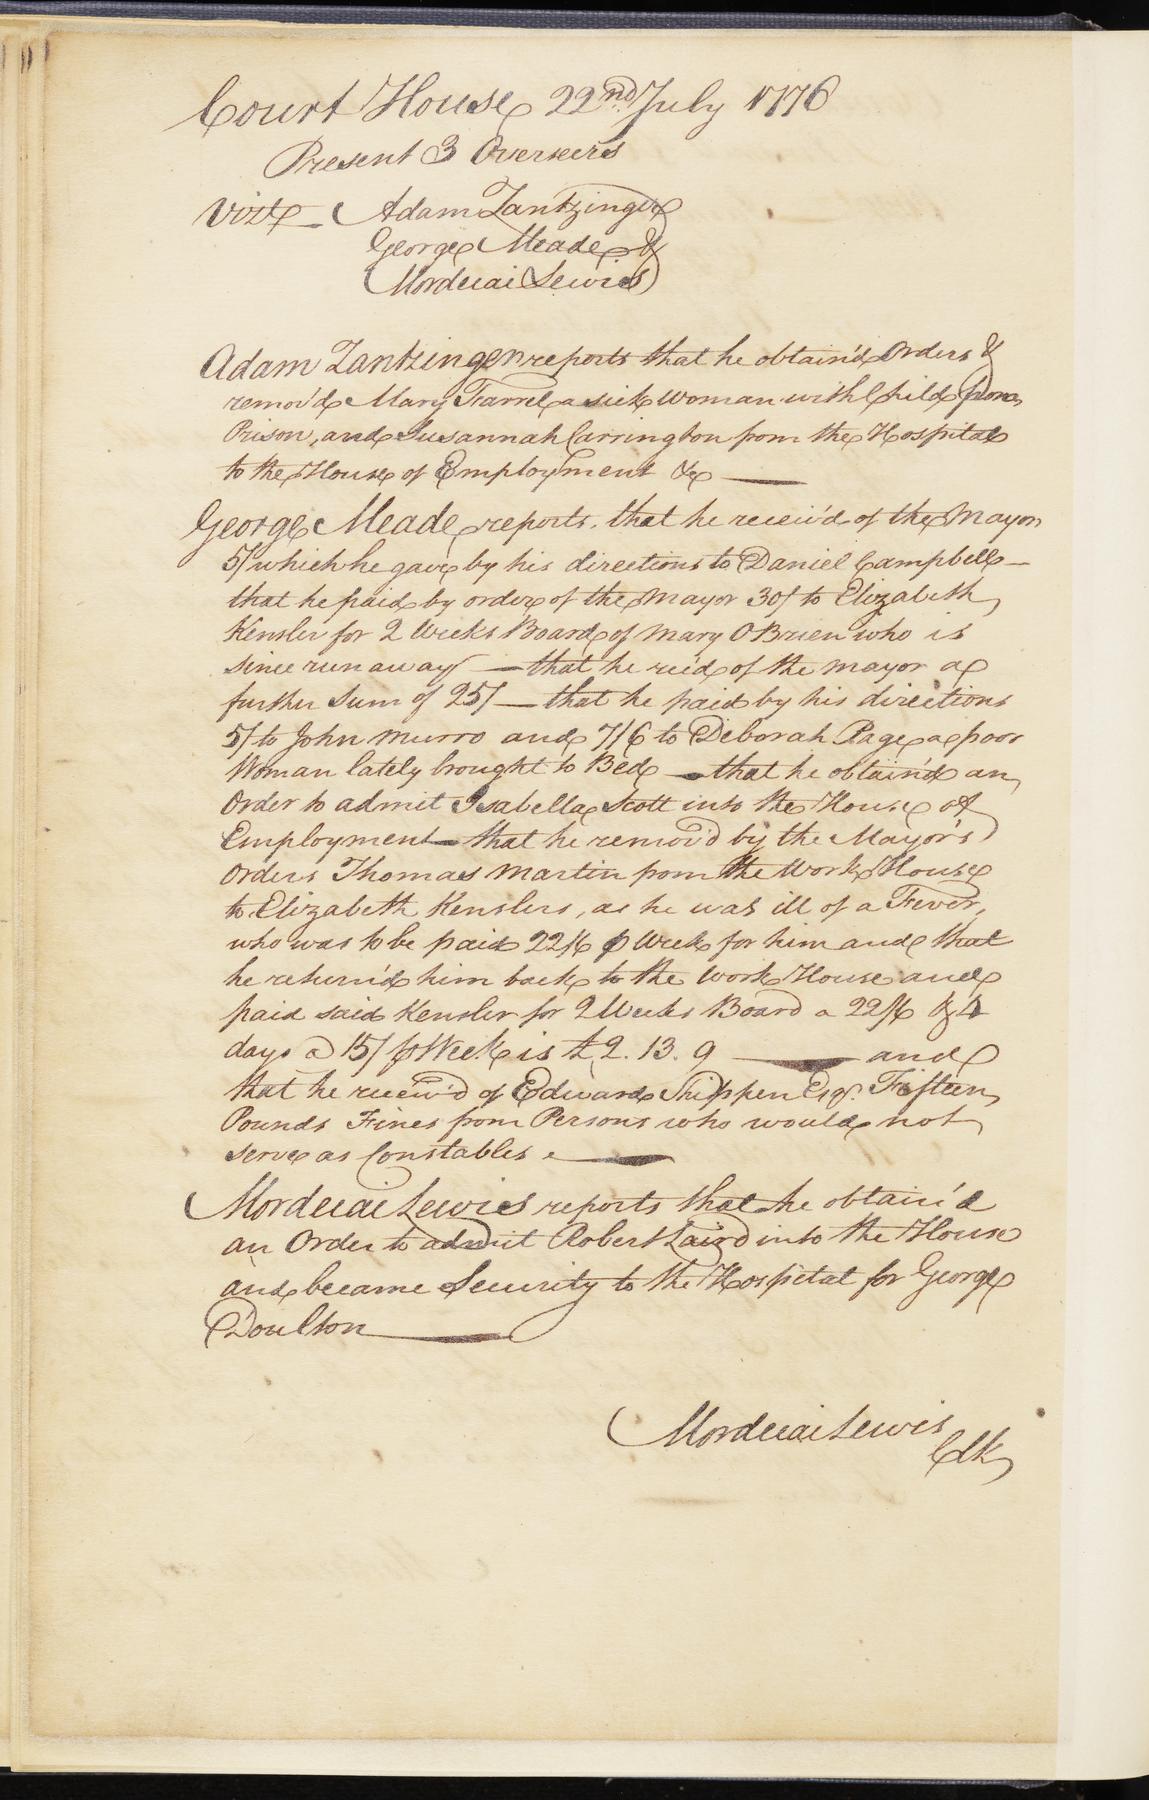 Court House 22nd July 1776
Present 3 Overseers
Vizt Adam Zantzinger
George Meade &
Mordecai Lewis
Adam Zantzinger reports that he obtain'd Orders &
remov'd Mary Farrel a sick Woman with Child from
Prison, and Susannah Carrington from the Hospital
to the House of Employment &c
George Meade reports. that he receiv'd of the Mayor
5/ which he gave by his directions to Daniel Campbell —
that he paid by order of the Mayor 30/ to Elizabeth
Kensler for 2 Weeks Board of Mary OBrien who is
since run away — that he rec'd of the mayor a
further Sum of 25/ — that he paid by his directions
5/ to John Murro and 7/6 to Deborah Page a poor
Woman lately brought to Bed — that he obtain'd an
Order to admit Isabella Scott into the House of
Employment — that he remov'd by the Mayor's
Orders Thomas Martin from the Work House
to Elizabeth Kenslers, as he was ill of a Fever,
who was to be paid 22/6 p Week for him and that
he return'd him back to the Work House and
paid said Kensler for 2 Weeks Board a 22/6 & 4
days @ 15/ p Week is £2.13.9 — and
that he receiv'd of Edward Shippen Esqr. Fifteen
Pounds Fines from Persons who would not
serve as Constables. —
Mordecai Lewis reports that he obtain'd
an Order to admit Robert Laird into the House
and became Security to the Hospital for George
Doulton —
Mordecai Lewis
Clk